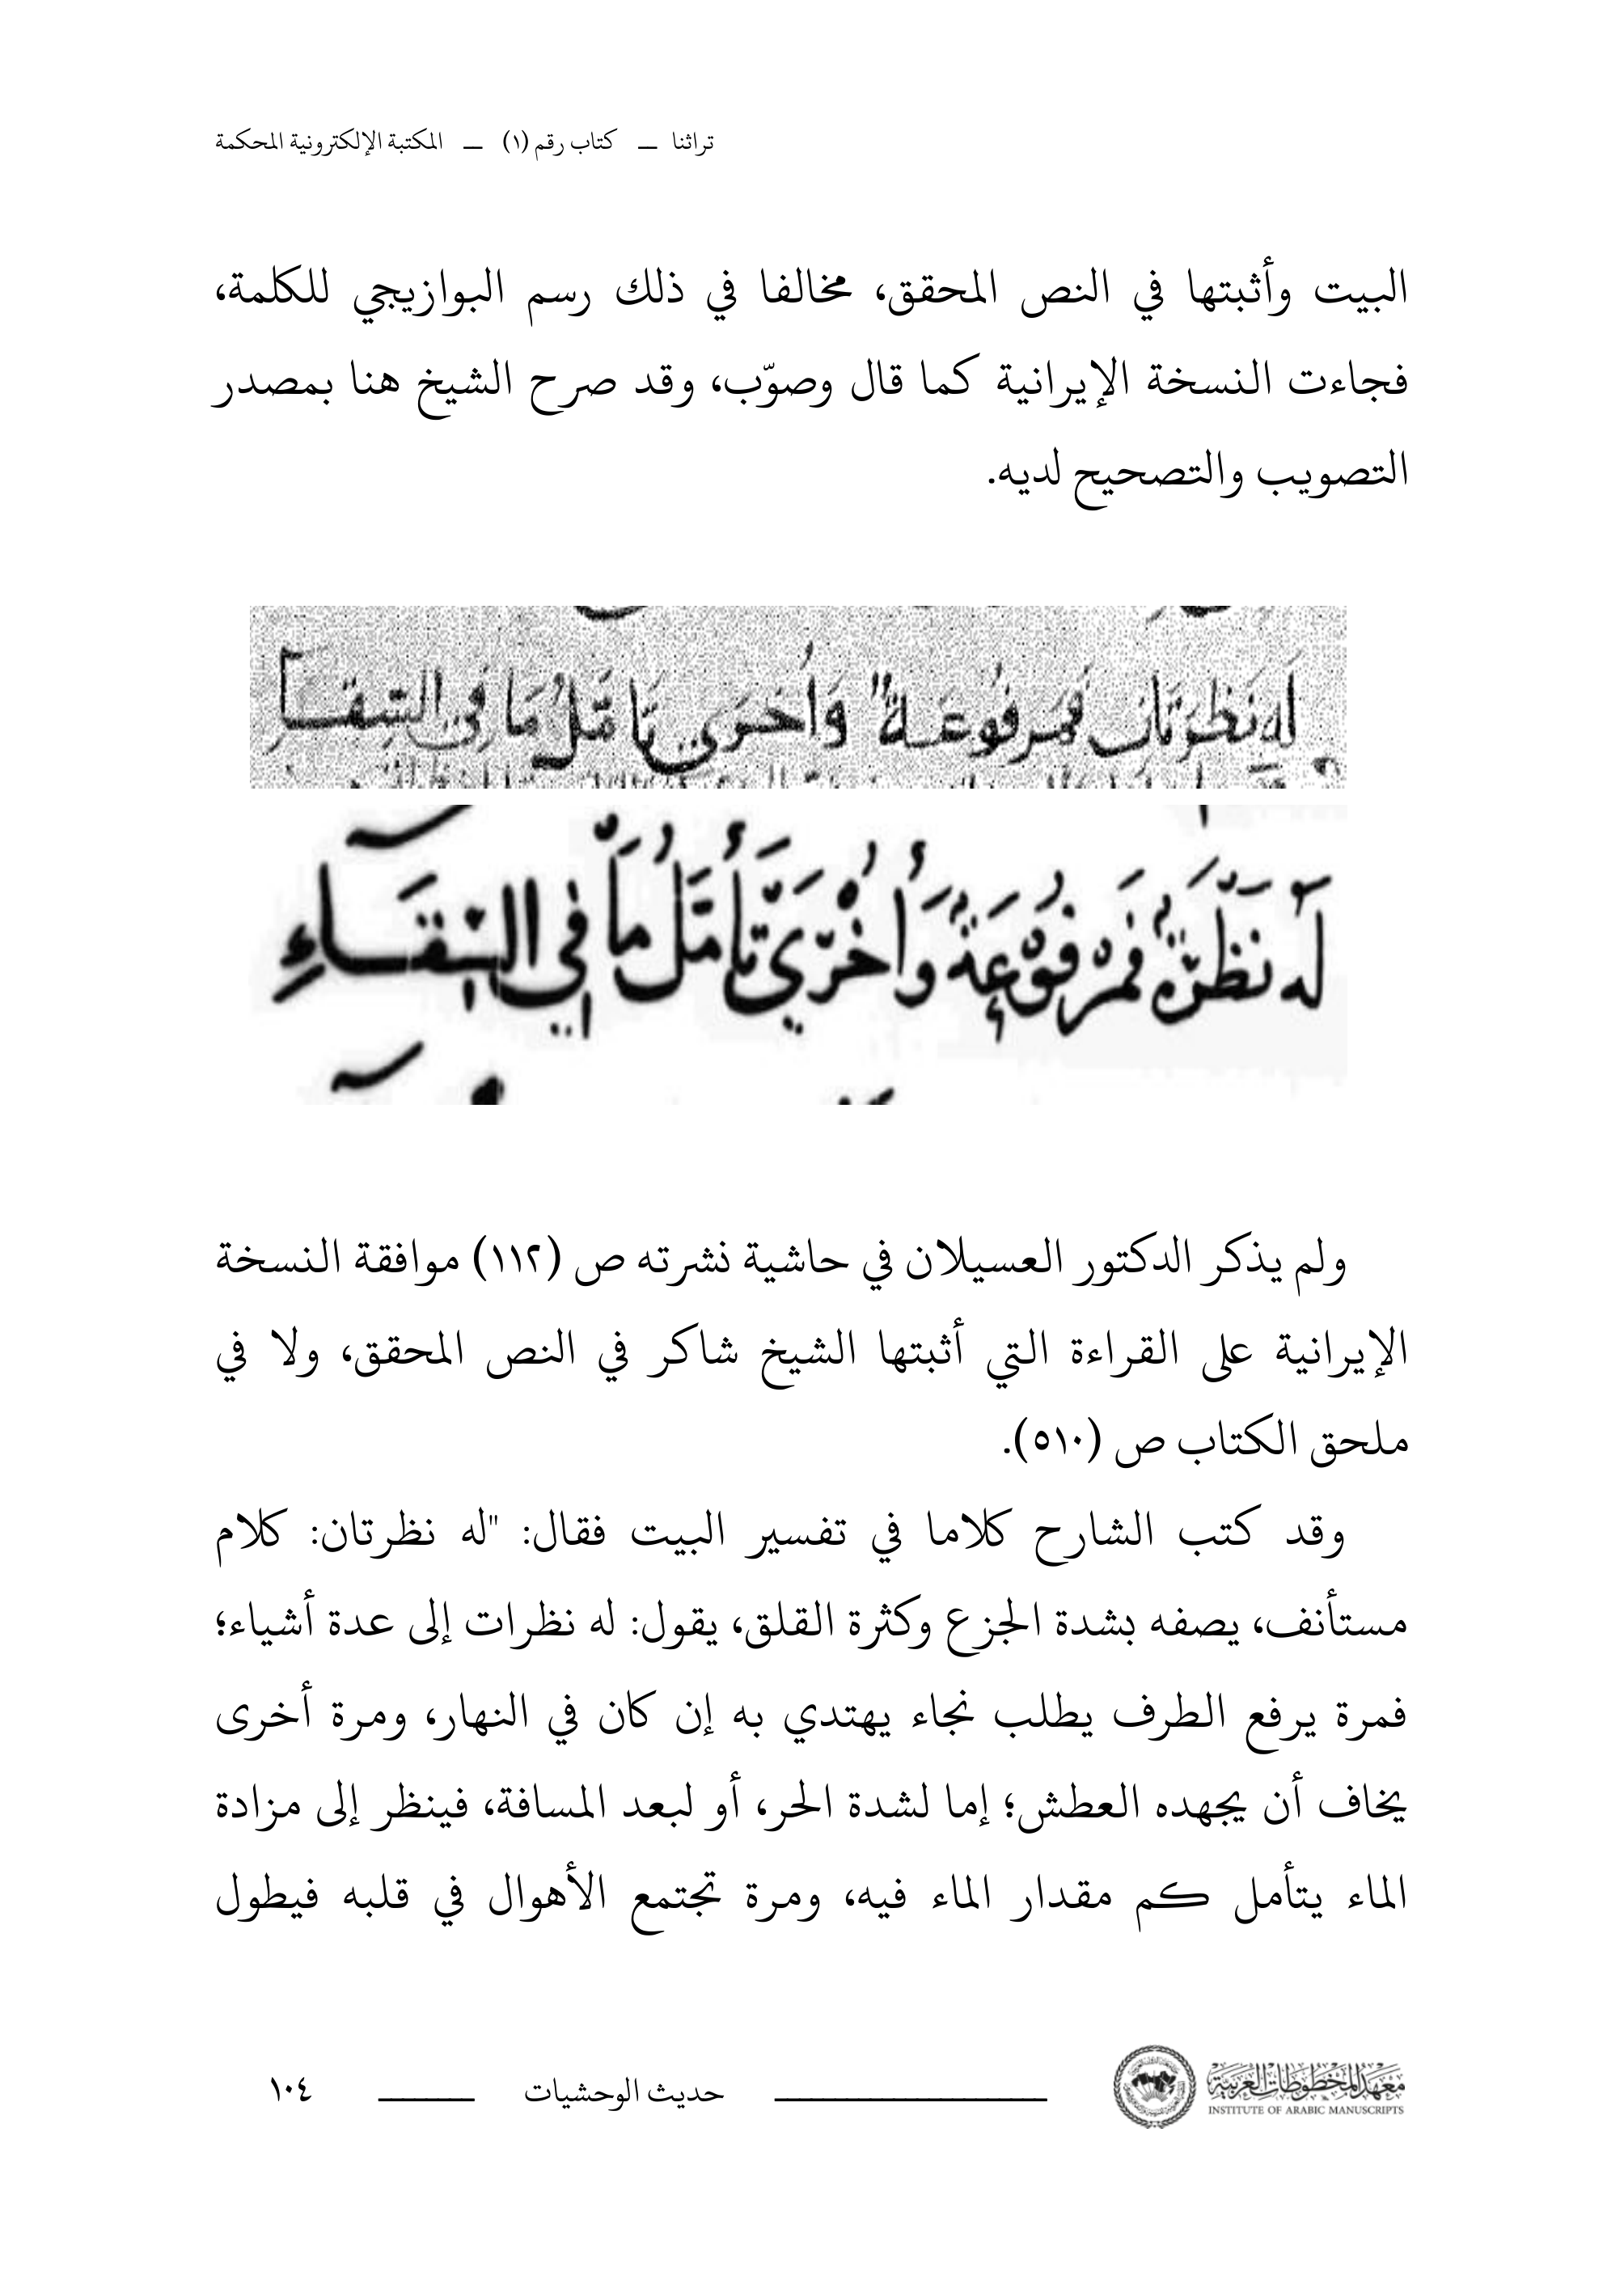 تراثنا — كتاب رقم (١) — المكتبة الإلكترونية المحكمة
البيت وأثبتها في النص المحقق، مخالفا في ذلك رسم البوازيجي للكلمة،
فجاءت النسخة الإيرانية كما قال وصوّب، وقد صرح الشيخ هنا بمصدر
التصويب والتصحيح لديه.
له نظرتان فمرفوعة وأخرى تأمل ما في
له فمرفوعة وأخرى تأمل ما في
ولم يذكر الدكتور العسيلان في حاشية نشرته ص (١١٢) موافقة النسخة
الإيرانية على القراءة التي أثبتها الشيخ شاكر في النص المحقق، ولا في
ملحق الكتاب ص (٥١٠).
وقد كتب الشارح كلاما في تفسير البيت فقال: "له نظرتان: كلام
مستأنف، يصفه بشدة الجزع وكثرة القلق، يقول: له نظرات إلى عدة أشياء؛
فمرة يرفع الطرف يطلب نجاء يهتدي به إن كان في النهار، ومرة أخرى
يخاف أن يجهده العطش؛ إما لشدة الحر، أو لبعد المسافة، فينظر إلى مزادة
الماء يتأمل كم مقدار الماء فيه، ومرة تجتمع الأهوال في قلبه فيطول
معهد المخطوطات العربية
INSTITUTE OF ARABIC MANUSCRIPTS
حديث الوحشيات
١٠٤